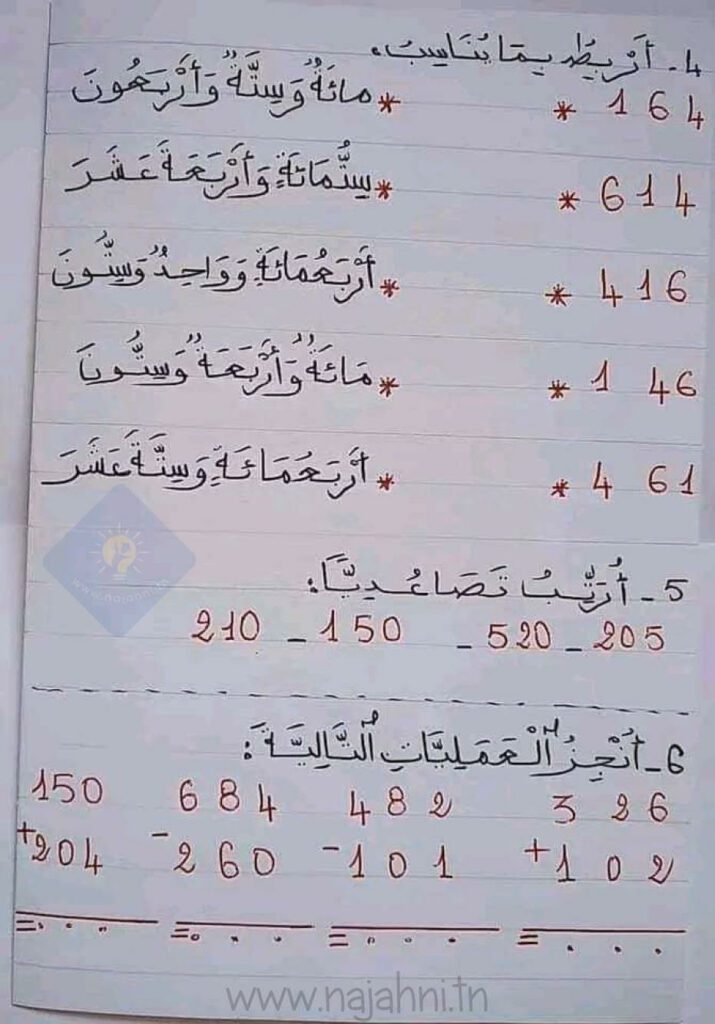 4- أَرْبِطُ بِمَا يُنَاسِبُ:
164 * * مائَةٌ وَسِتَّةٌ وَأَرْبَعُونَ
614 * * سِتُّمَائَةٍ وَأَرْبَعَةَ عَشَرَ
416 * * أَرْبَعُمَائَةٍ وَوَاحِدٌ وَسِتُّونَ
146 * * مَائَةٌ وَأَرْبَعَةٌ وَسِتُّونَ
461 * * أَرْبَعُمَائَةٍ وَسِتَّةَ عَشَرَ
5- أُرَتِّبُ تَصَاعُدِيًّا:
210 - 150 - 520 - 205
6- أُنْجِزُ الْعَمَلِيَّاتِ التَّالِيَةَ:
150 684 482 326
+204 -260 -101 +102
=... =... =... =...
www.najahni.tn
www.najahni.tn